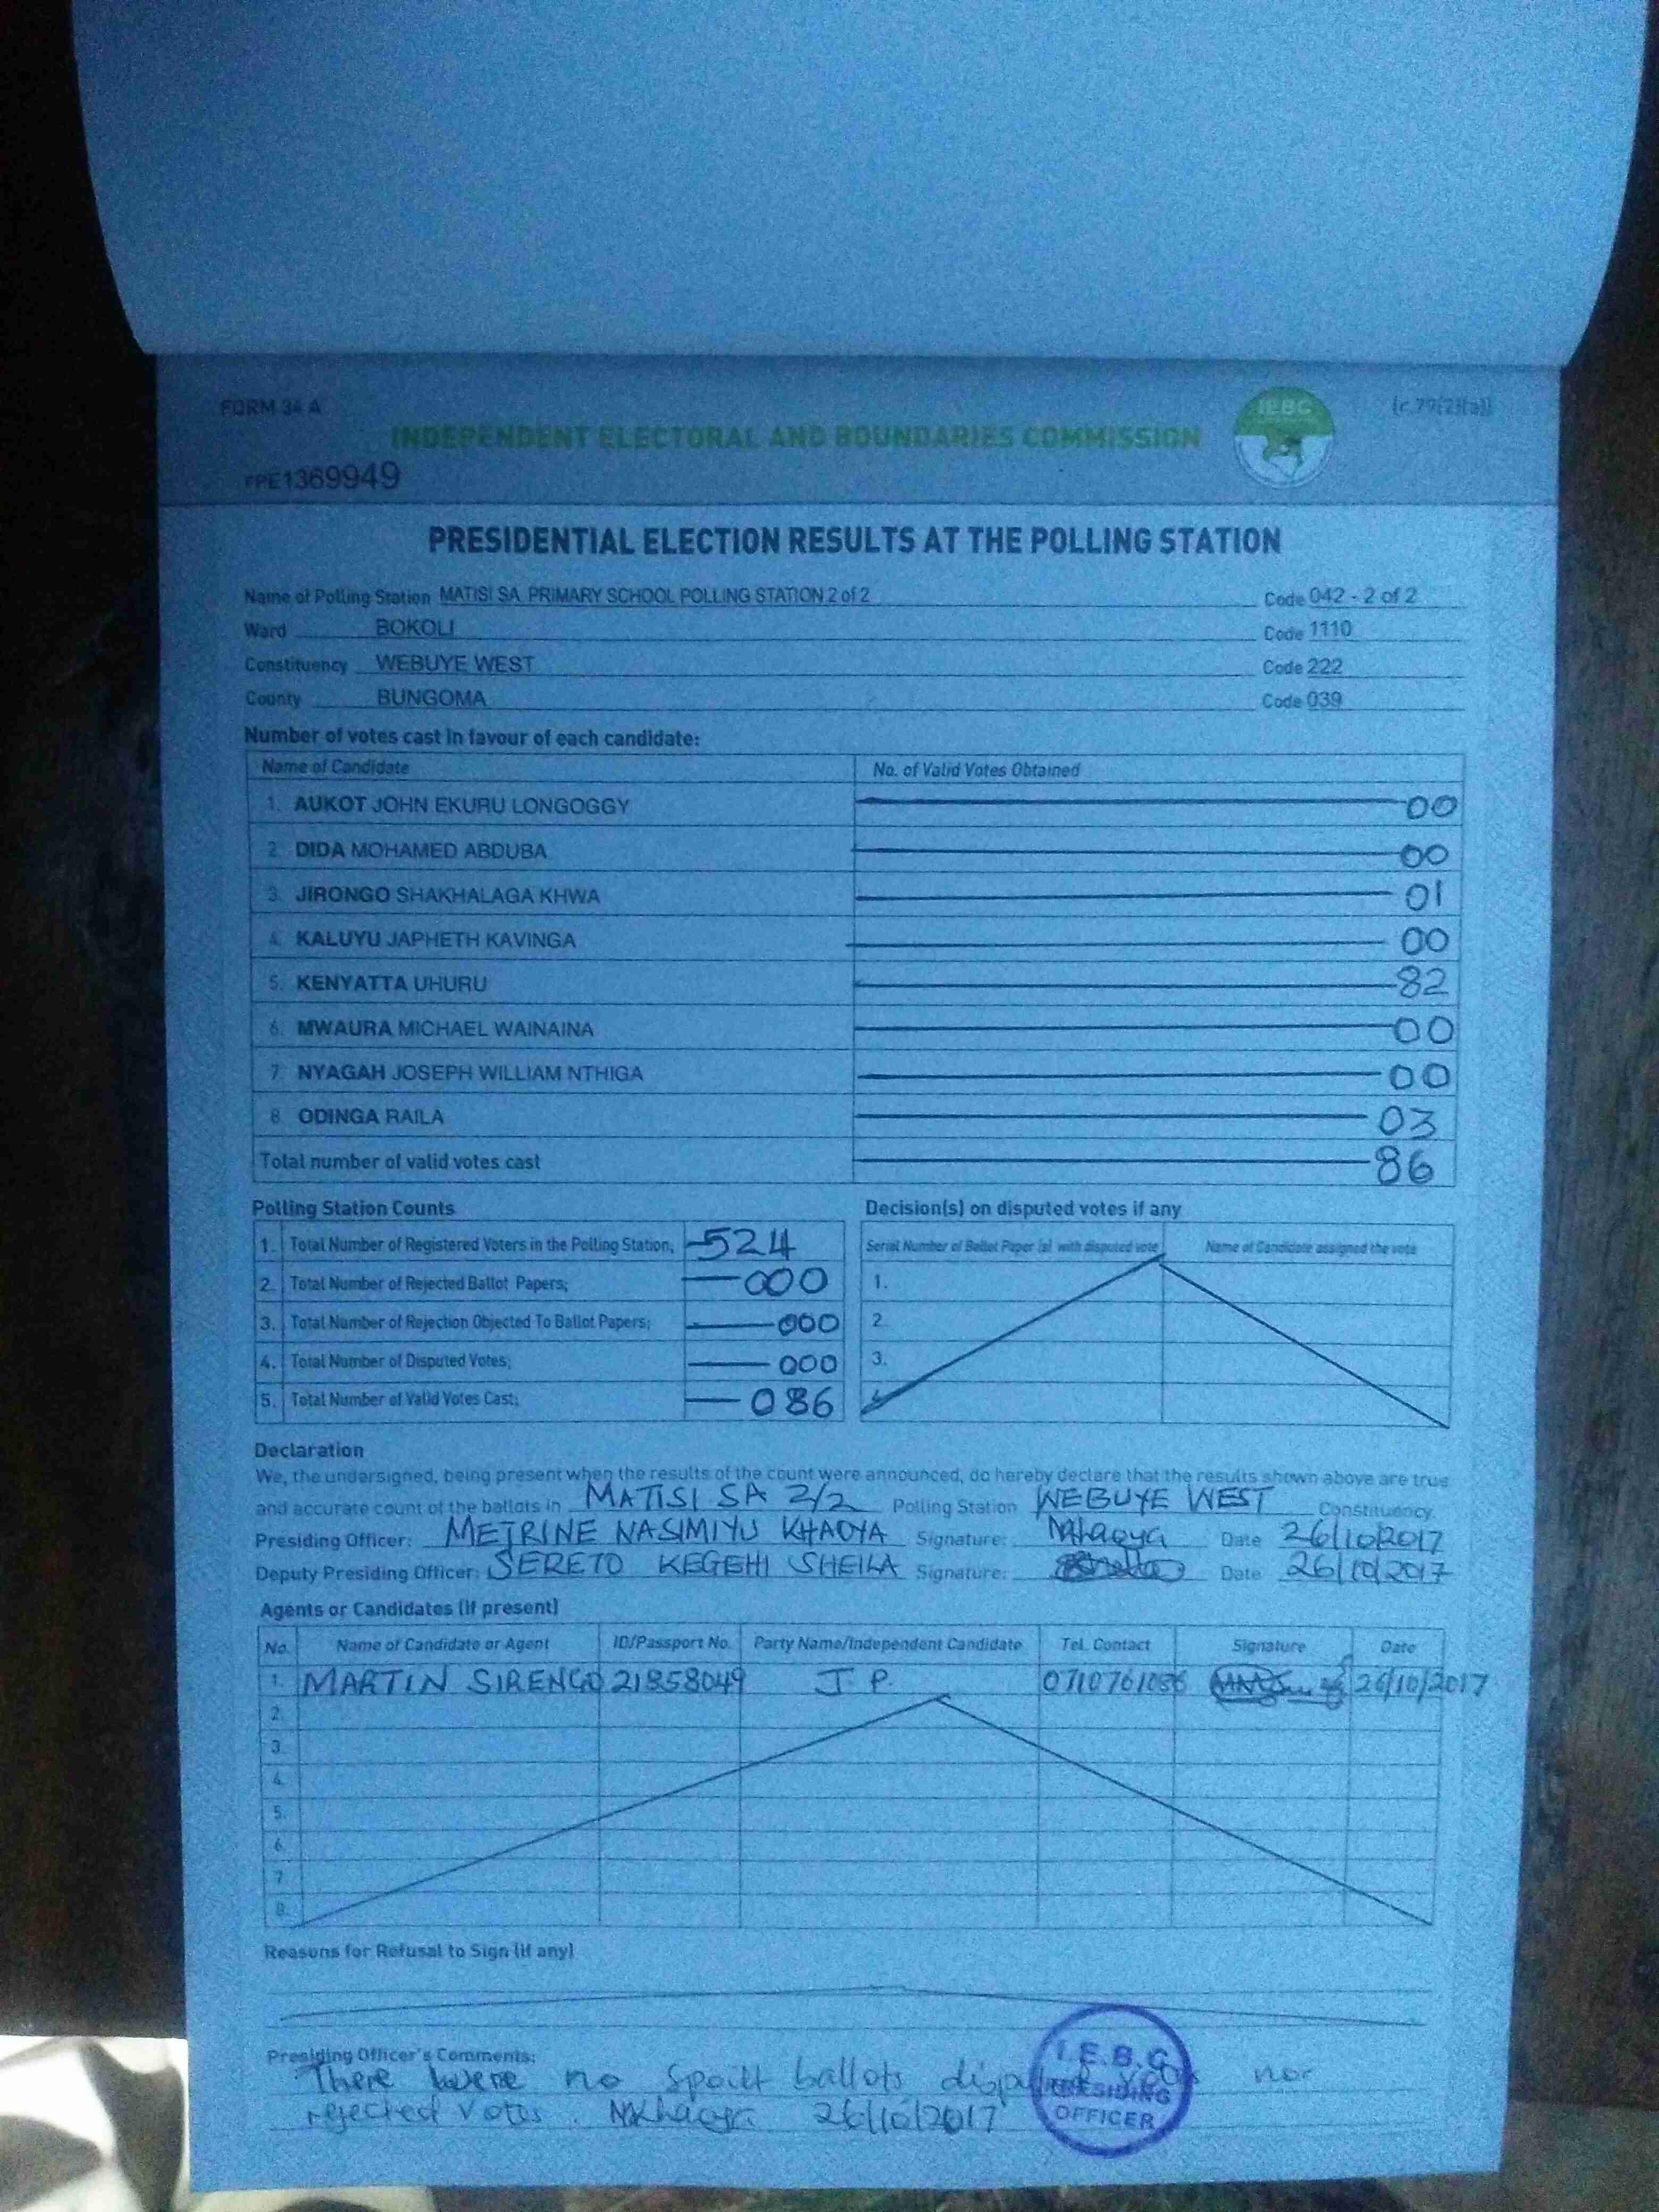 FORM 34 A
(r.79(2)(a))
IEBC
INDEPENDENT ELECTORAL AND BOUNDARIES COMMISSION
FPE1369949
PRESIDENTIAL ELECTION RESULTS AT THE POLLING STATION
Name of Polling Station MATISI SA PRIMARY SCHOOL POLLING STATION 2 of 2 Code 042 - 2 of 2
Ward BOKOLI Code 1110
Constituency WEBUYE WEST Code 222
County BUNGOMA Code 039
Number of votes cast in favour of each candidate:
Name of Candidate No. of Valid Votes Obtained
1. AUKOT JOHN EKURU LONGOGGY 00
2. DIDA MOHAMED ABDUBA 00
3. JIRONGO SHAKHALAGA KHWA 01
4. KALUYU JAPHETH KAVINGA 00
5. KENYATTA UHURU 82
6. MWAURA MICHAEL WAINAINA 00
7. NYAGAH JOSEPH WILLIAM NTHIGA 00
8. ODINGA RAILA 03
Total number of valid votes cast 86
Polling Station Counts Decision(s) on disputed votes if any
Serial Number of Ballot Paper (s) with disputed vote Name of Candidate assigned the vote
1. Total Number of Registered Voters in the Polling Station; 524
2. Total Number of Rejected Ballot Papers; 000 1.
3. Total Number of Rejection Objected To Ballot Papers; 000 2.
4. Total Number of Disputed Votes; 000 3.
5. Total Number of Valid Votes Cast; 086
Declaration
We, the undersigned, being present when the results of the count were announced, do hereby declare that the results shown above are true
and accurate count of the ballots in MATISI SA 2/2 Polling Station WEBUYE WEST Constituency.
Presiding Officer: METRINE NASIMIYU KHAOYA Signature: NKhaoya Date 26/10/2017
Deputy Presiding Officer: SERETO KEGEHI SHEILA Signature: Date 26/10/2017
Agents or Candidates (if present)
No. Name of Candidate or Agent ID/Passport No. Party Name/Independent Candidate Tel. Contact Signature Date
1. MARTIN SIRENGO 21858049 J. P. 0710761086 26/10/2017
2.
3.
4.
5.
6.
7.
8.
Reasons for Refusal to Sign (if any)
Presiding Officer's Comments:
There were no spoilt ballots nor
rejected votes. NKhaoya 26/10/2017
I.E.B.C
PRESIDING
OFFICER